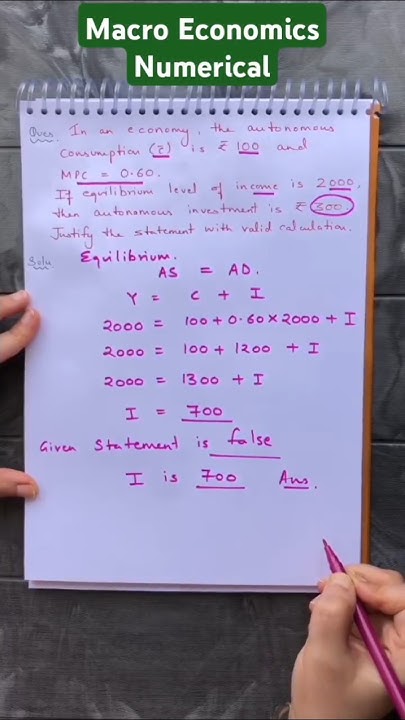 Macro Economics
Numerical
Ques. In an economy, the autonomous
consumption (c̄) is ₹ 100 and
MPC = 0.60.
If equilibrium level of income is 2000,
then autonomous investment is ₹ 300.
Justify the statement with valid calculation.
Solu. Equilibrium.
AS = AD.
Y = C + I
2000 = 100 + 0.60 × 2000 + I
2000 = 100 + 1200 + I
2000 = 1300 + I
I = 700
Given statement is false
I is 700 Ans.